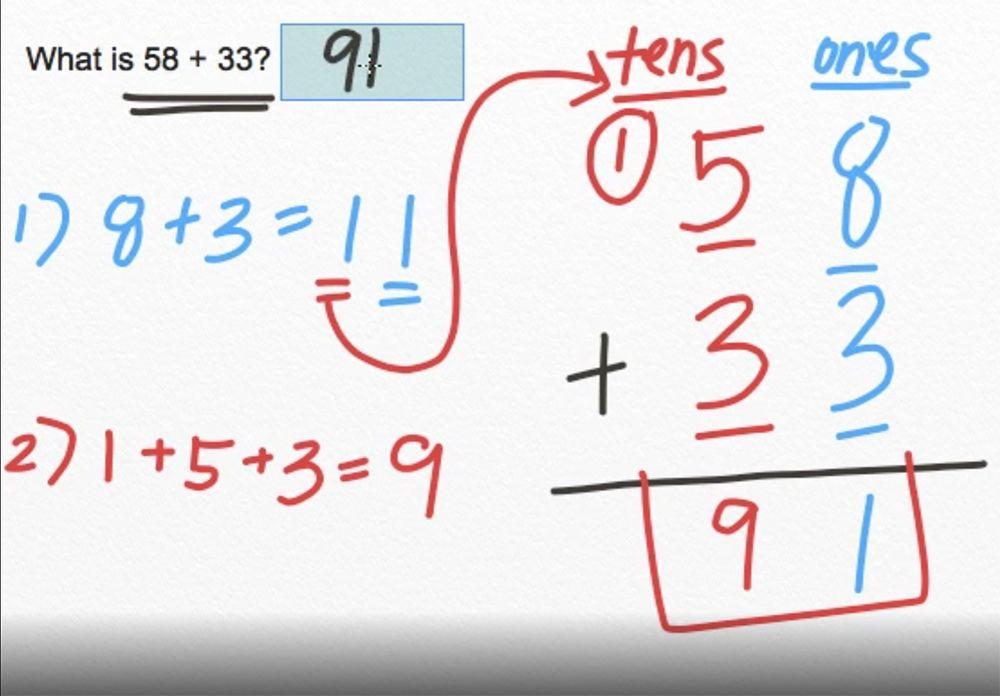 What is 58 + 33? 91
tens ones
1) 8+3=11
① 5 8
+ 3 3
2) 1+5+3=9
9 1